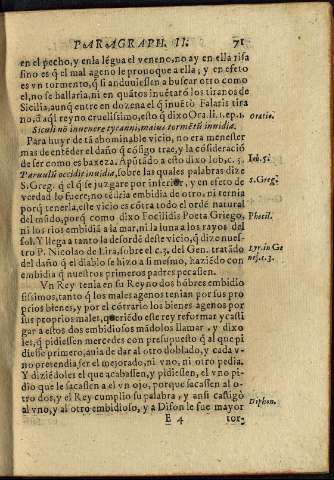 PARAGRAPH. II. 71
en el pecho, y en la lēgua el veneno, no ay en ella risa
sino es q̃ el mal ageno le prouoque a ella; y en efeto
es vn tormento, q̃ si anduuiessen a buscar otro como
el, no se hallaria, ni en quãtos inuẽtarõ los tiranos de
Sicilia, aunq̃ entre en dozena el q̃ inuẽtò Falaris tira
no, q̃ aq̃l reyno cruelissimo, esto q̃ dixo Ora. li. 1. ep. 1. oratio.
Siculi nõ inuenere tyranni, maius tormẽtũ inuidia.
Para huyr de tã abominable vicio, no era menester
mas de entẽder el daño q̃ cõsigo trae, y la cõsideraciõ
de ser como es baxeza. Apũtado a esto dixo Iob, c. 5. Iob. 5.
Paruulũ occidit inuidia, sobre las quales palabras dize
S. Greg. q̃ el q̃ se juzgare por inferior, y en efeto de s. Greg.
verdad lo fuere, no tẽdria embidia de otro, ni ternia
porq̃ tenerla, este vicio es cõtra todo el ordẽ natural
del mũdo, porq̃ como dixo Focilidis Poeta Griego, Phocil.
ni los rios embidiã a la mar, ni la luna a los rayos del
sol. Y llega a tanto la desordẽ deste vicio, q̃ dize nues-
tro P. Nicolao de Lira, sobre el c. 3. del Gen. tratãdo Lyr. in Ge
del daño q̃ el diablo se hizo a si mesmo, haziẽdo con nes. c. 3.
embidia q̃ nuestros primeros padres pecassen.
Vn Rey tenia en su Reyno dos hõbres embidio
sissimos, tanto q̃ los males agenos tenian por sus pro
prios bienes, y por el cõtrario los bienes agenos por
sus proprios males, queriẽdo este rey reformar y casti
gar a estos dos embidiosos mãdolos llamar, y dixo
les, q̃ pidiessen mercedes con presupuesto q̃ al que pi
diesse primero, auia de dar al otro doblado, y cada v-
no pretendia ser el mejorado, ni vno, ni otro pedia.
Y diziẽdoles el que acabassen, y pidiessen, el vno pi-
dio que le sacassen a el vn ojo, porque sacassen al o-
tro dos, y el Rey cumplio su palabra, y ansi castigò
al vno, y al otro embidioso, y a Difon le fue mayor Diphon.
E 4 tor-